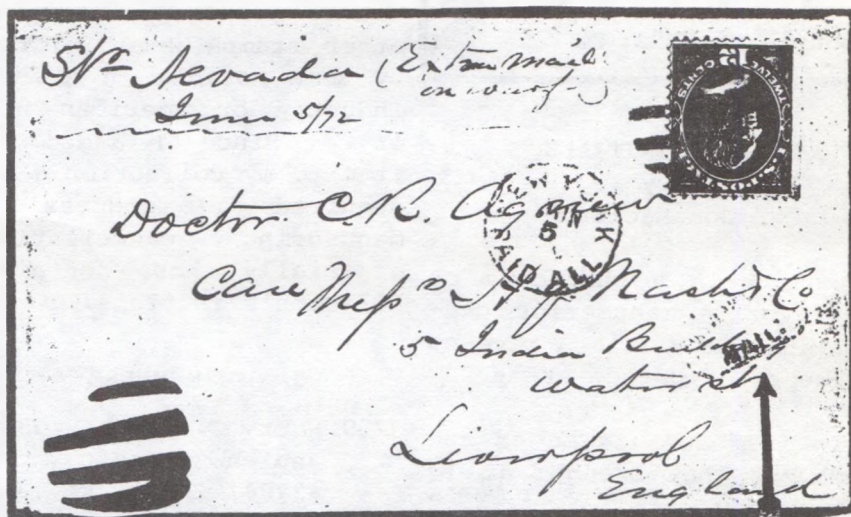 Str Nevada (Extra Mail
on wharf)
June 5/72
12
TWELVE CENTS
NEW YORK
JUN
5
PAID ALL
Doctor. C.R. Agnew
Care Messrs H J Nash & Co
5 India Building
Water St
MAIL.
Liverpool
England